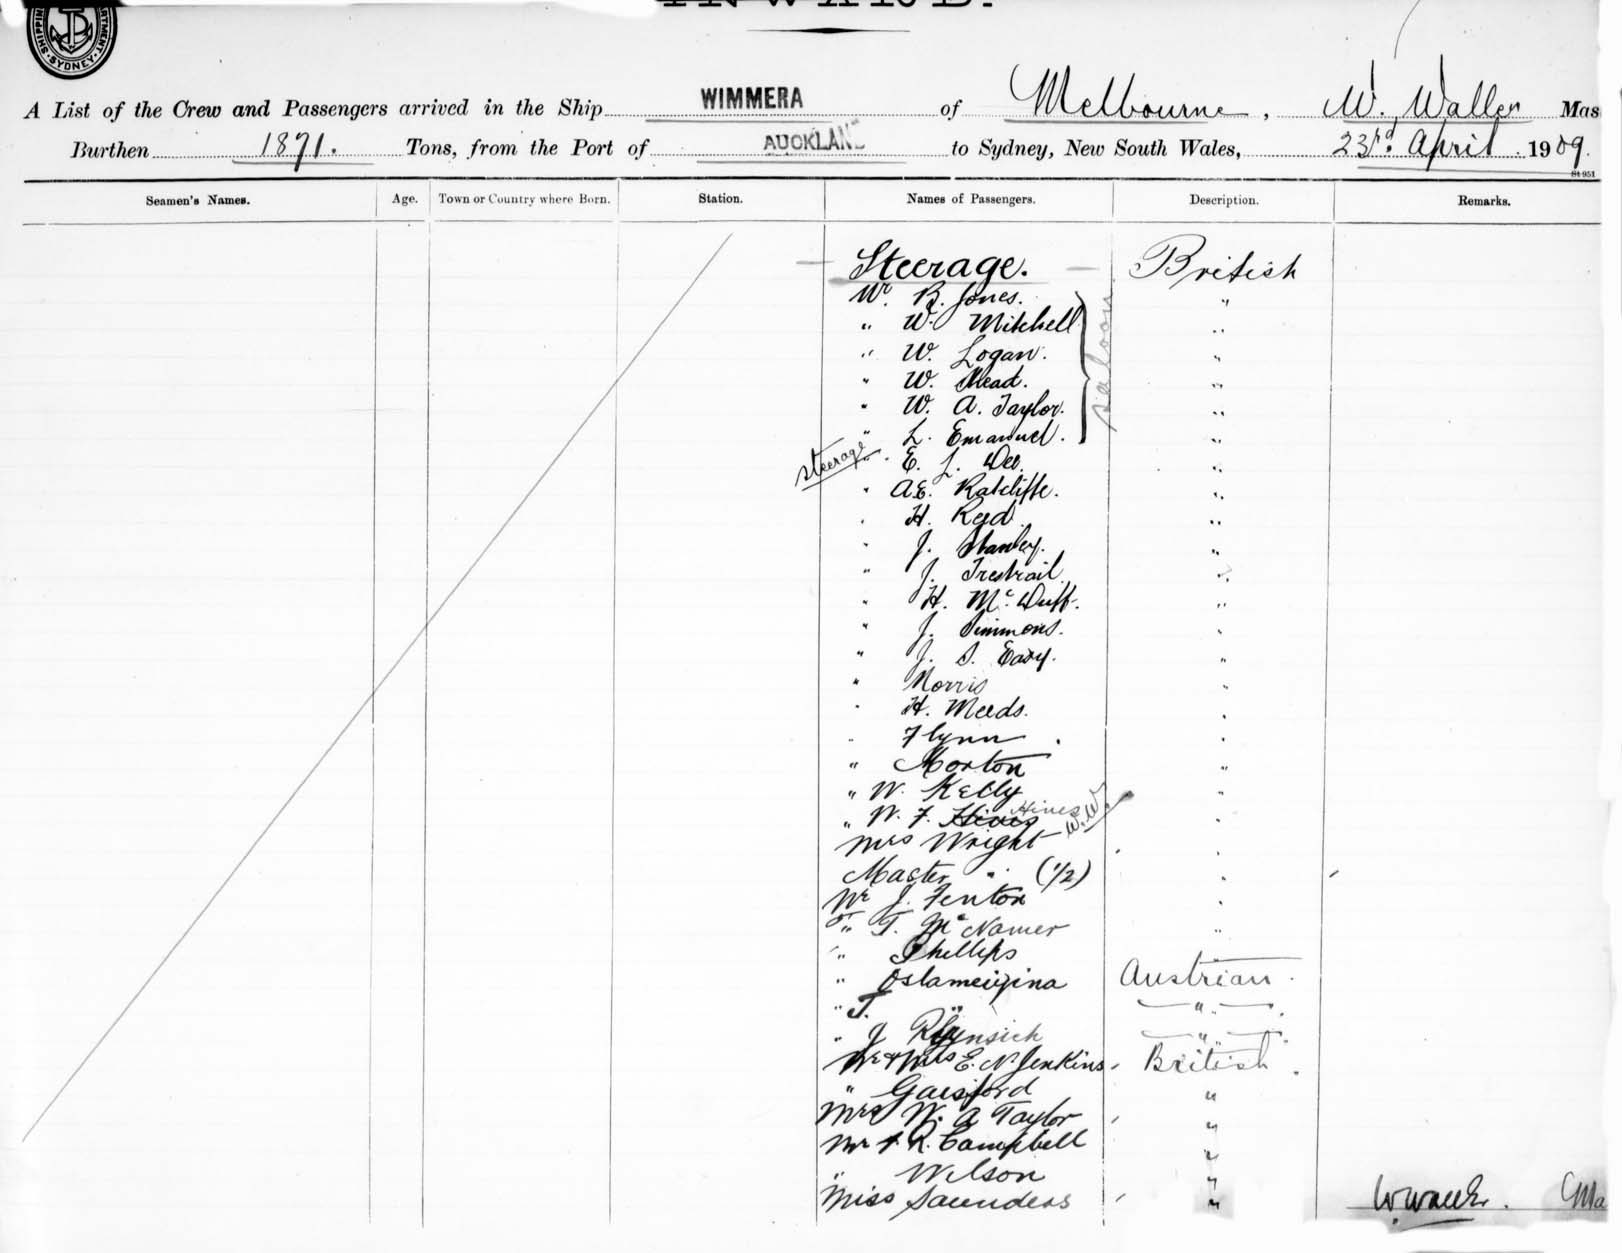 INWARD.
SHIPPING DEPARTMENT SYDNEY
A List of the Crew and Passengers arrived in the Ship WIMMERA of Melbourne, W. Waller Mas
Burthen 1871. Tons, from the Port of AUCKLAND to Sydney, New South Wales, 23rd April 1909.
St 951
Seamen's Names. Age. Town or Country where Born. Station. Names of Passengers. Description. Remarks.
Steerage. British
Mr. B. Jones. "
" W. Mitchell "
" W. Logan. "
" W. Mead. "
" W. A. Taylor. "
" L. Emanuel. "
saloon
steerage " E. J. "
" A.E. Ratcliffe. "
" H. Reed "
" J. Stanley. "
" J. Trestrail "
" H. McDuff. "
" J. Simmons. "
" J. S. Easy. "
" Norris "
" H. Meeds. "
" Flynn "
" Morton "
" W. Kelly "
" W. F. Hines Hines W.W. "
Mrs Wright "
Master " (1/2) "
Mr J. Fenton "
" T. McNamer "
" Phillips
" Austrian.
" T. " "
" J "
Mr & Mrs E. N. Jenkins British
" Gaisford "
Mrs W. A Taylor "
Mr R. Campbell "
" Wilson "
Miss Saunders " W. Waller. Ma